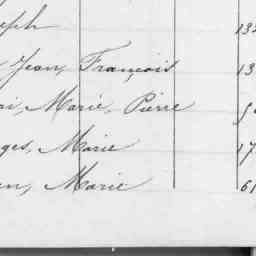 eph 132
Jean, François 13
ai, Marie, Pierre
ges, Marie 17
en, Marie 61